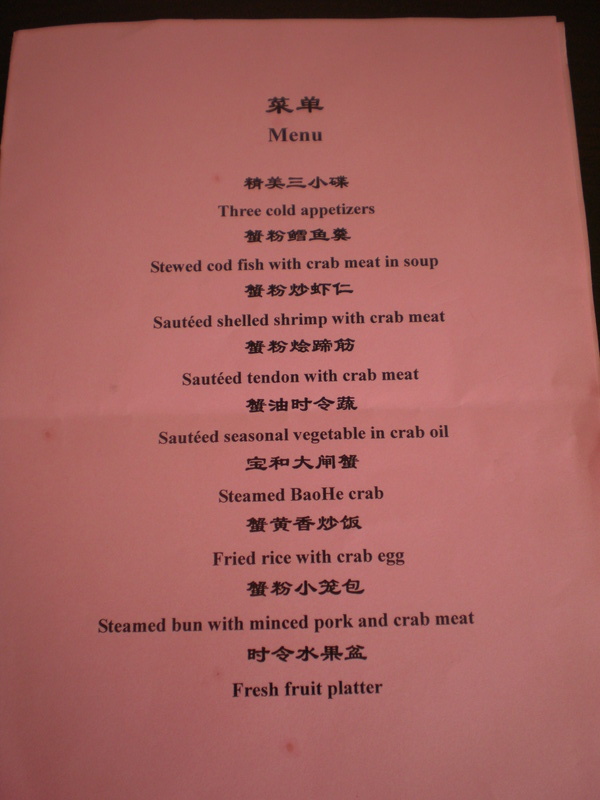 菜单
Menu
精美三小碟
Three cold appetizers
蟹粉鳕鱼羹
Stewed cod fish with crab meat in soup
蟹粉炒虾仁
Sautéed shelled shrimp with crab meat
蟹粉烩蹄筋
Sautéed tendon with crab meat
蟹油时令蔬
Sautéed seasonal vegetable in crab oil
宝和大闸蟹
Steamed BaoHe crab
蟹黄香炒饭
Fried rice with crab egg
蟹粉小笼包
Steamed bun with minced pork and crab meat
时令水果盆
Fresh fruit platter